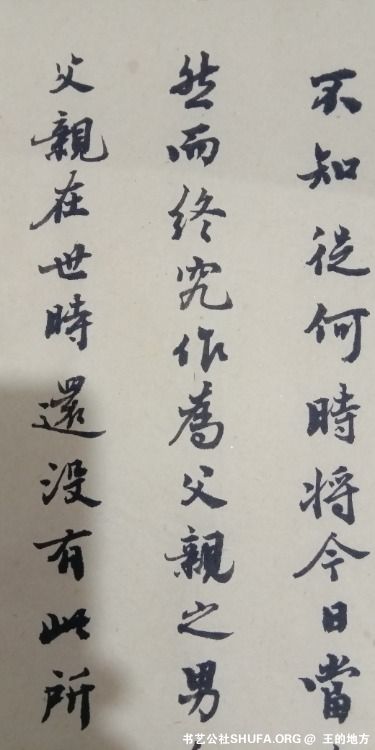 不知從何時将今日當
然而终究作為父親之男
父親在世時還没有此所
书艺公社SHUFA.ORG @ 王的地方